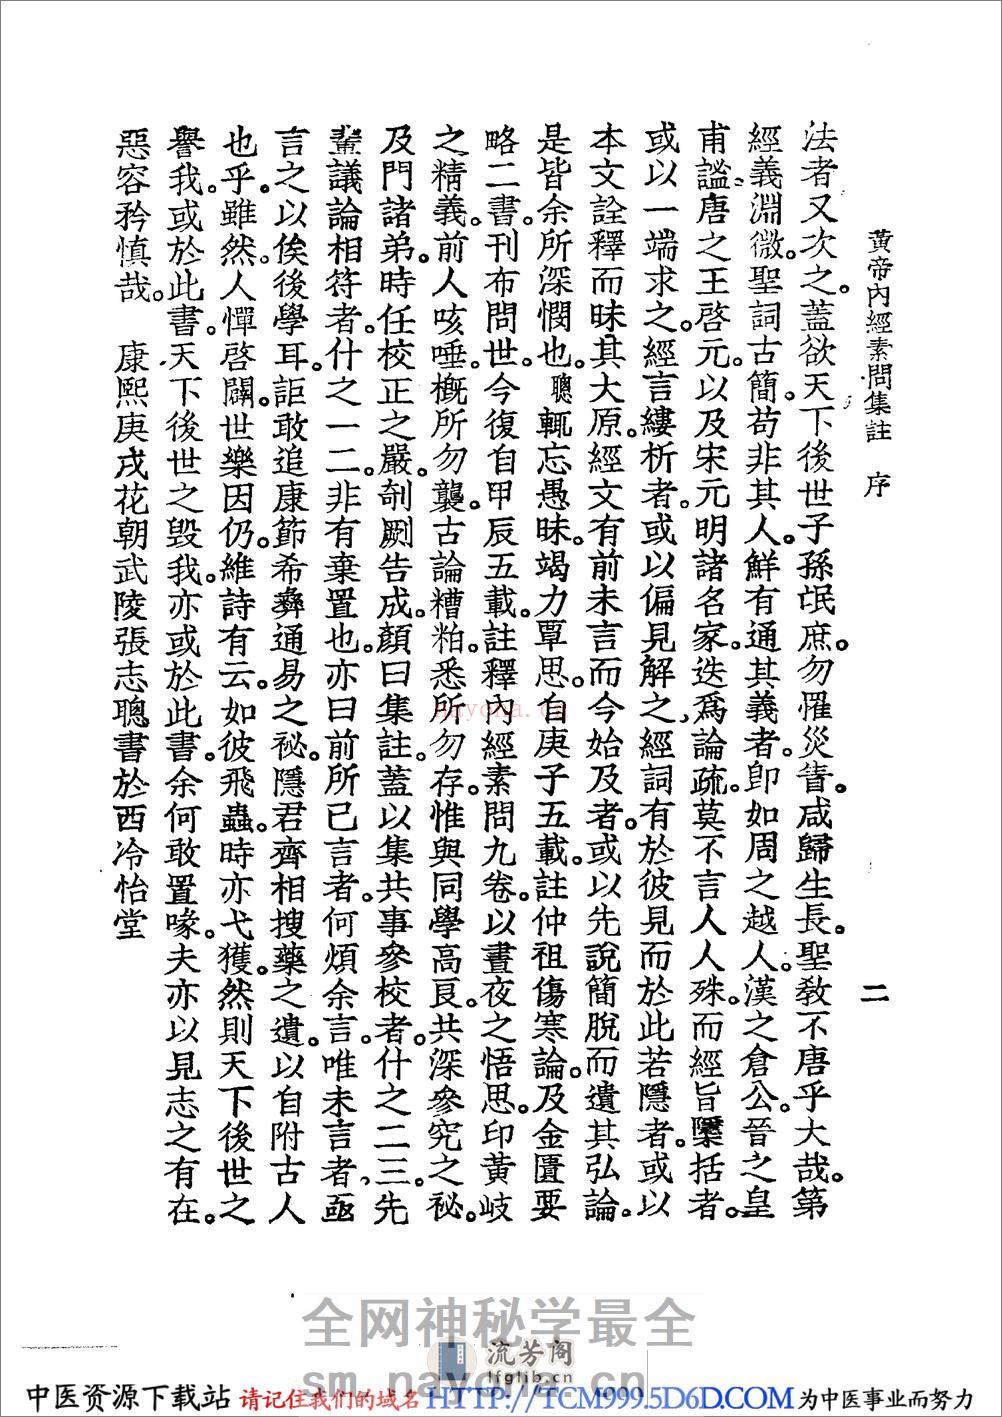 黃帝內經素問集註 序 二
法者又次之。蓋欲天下後世子孫氓庶。勿罹災眚。咸歸生長。聖敎不唐乎大哉。第
經義淵微。聖詞古簡。苟非其人。鮮有通其義者。卽如周之越人。漢之倉公。晉之皇
甫謐。唐之王啓元。以及宋元明諸名家。迭爲論疏。莫不言人人殊。而經旨隱括者。
或以一端求之。經言縷析者。或以偏見解之、經詞有於彼見而於此若隱者。或以
本文詮釋而昧其大原。經文有前未言而今始及者。或以先說簡脫而遺其弘論。
是皆余所深憫也。聰輒忘愚昧。竭力覃思。自庚子五載。註仲祖傷寒論。及金匱要
略二書。刊布問世。今復自甲辰五載。註釋內經素問九卷。以晝夜之悟思。印黃岐
之精義。前人咳唾。槪所勿襲。古論糟粕。悉所勿存。惟與同學高良。共深參究之秘。
及門諸弟。時任校正之嚴。剞劂告成。顏曰集註。蓋以集共事參校者。什之二三。先
輩議論相符者。什之一二。非有棄置也。亦曰前所已言者。何煩余言。唯未言者、亟
言之以俟後學耳。詎敢追康節希彝通易之秘。隱君齊相搜藥之遺。以自附古人
也乎。雖然。人憚啓闢。世樂因仍。維詩有云。如彼飛蟲。時亦弋獲。然則天下後世之
譽我。或於此書。天下後世之毀我。亦或於此書。余何敢置喙。夫亦以見志之有在。
惡容矜慎哉。 康熙庚戌花朝武陵張志聰書於西冷怡堂
nayona.cn
全网神秘学最全
流芳阁
lfglib.cn
sm.nayona.cn
中医资源下载站 请记住我们的域名 HTTP://TCM999.5D6D.COM 为中医事业而努力